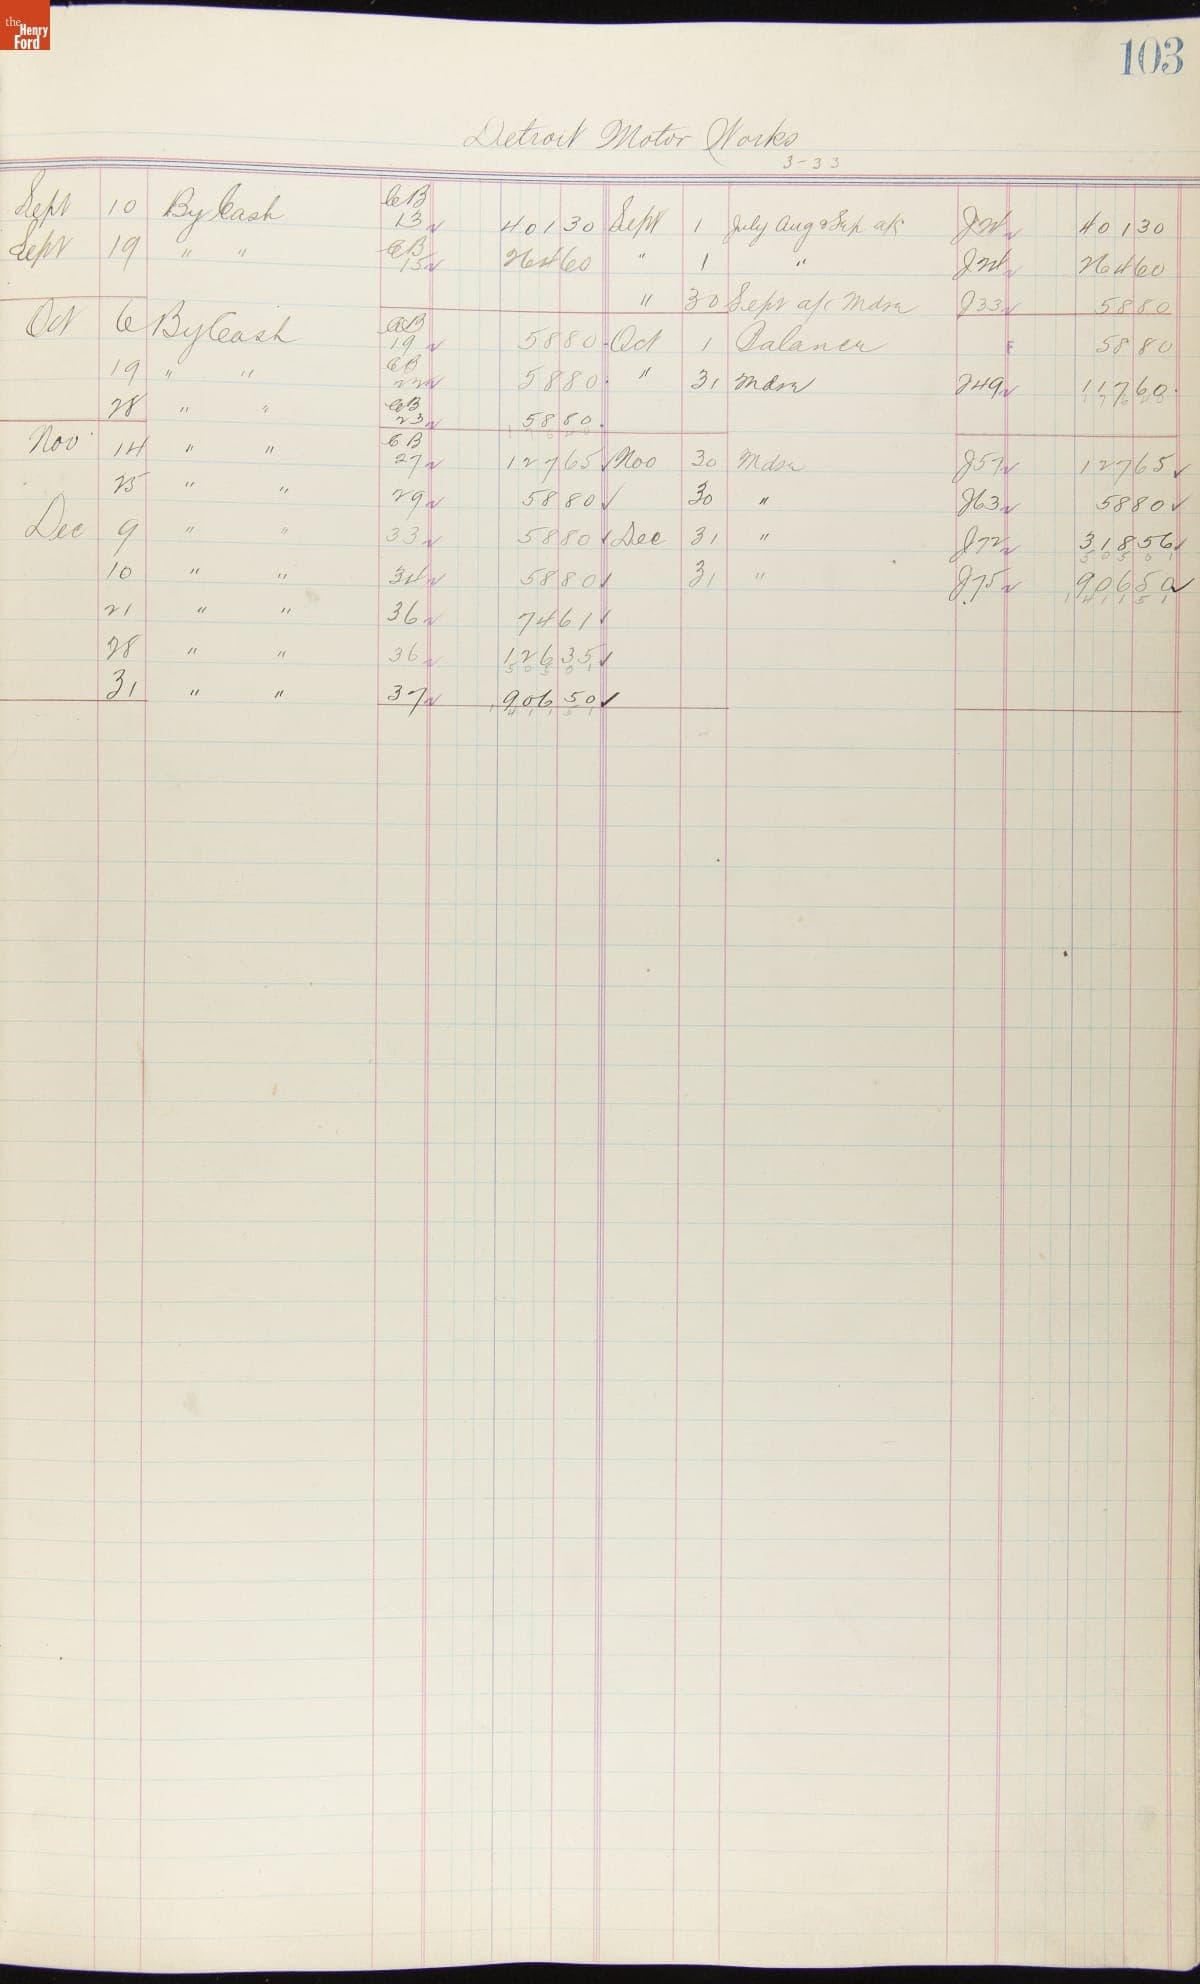 the Henry Ford
103
Detroit Motor Works
3-33
Sept 10 By Cash CB 13 401 30 Sept 1 July Aug & Sep a/c J24 401 30
Sept 19 " " CB 15 264 60 " 1 " J24 264 60
" 30 Sept a/c Mdse J33 58 80
Oct 6 By Cash CB 19 58 80 Oct 1 Balance F 58 80
19 " " CB 22 58 80 " 31 Mdse J49 117 60
28 " " CB 23 58 80
176 40 176 40
Nov 14 " " CB 27 127 65 Nov 30 Mdse J57 127 65
25 " " 29 58 80 30 " J63 58 80
Dec 9 " " 33 58 80 Dec 31 " J72 318 56
505 01
10 " " 34 58 80 31 " J75 906 50
1411 51
21 " " 36 74 61
28 " " 36 126 35
505 01
31 " " 37 906 50
1411 51